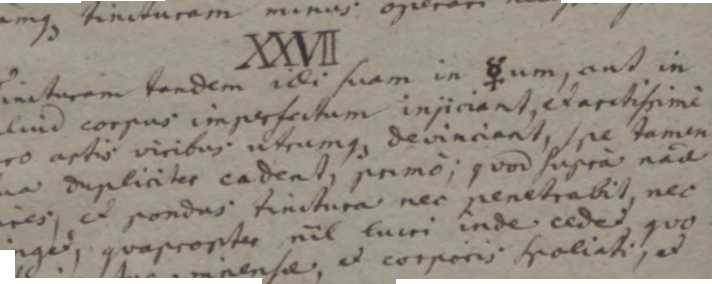 tincturam minus operari
XXVII
Tincturam tandem isti suam in ☿um, aut in
aliud corpus imperfectum injiciant, et arctissimè
pro artis viribus utrumq, devinciant, spe tamen
sua dupliciter cadent, primò; quod suprà
vires, et pondus tinctura nec penetrabit, nec
tinget, quapropter nil lucri inde cedet, quo
et corporis spoliati, et